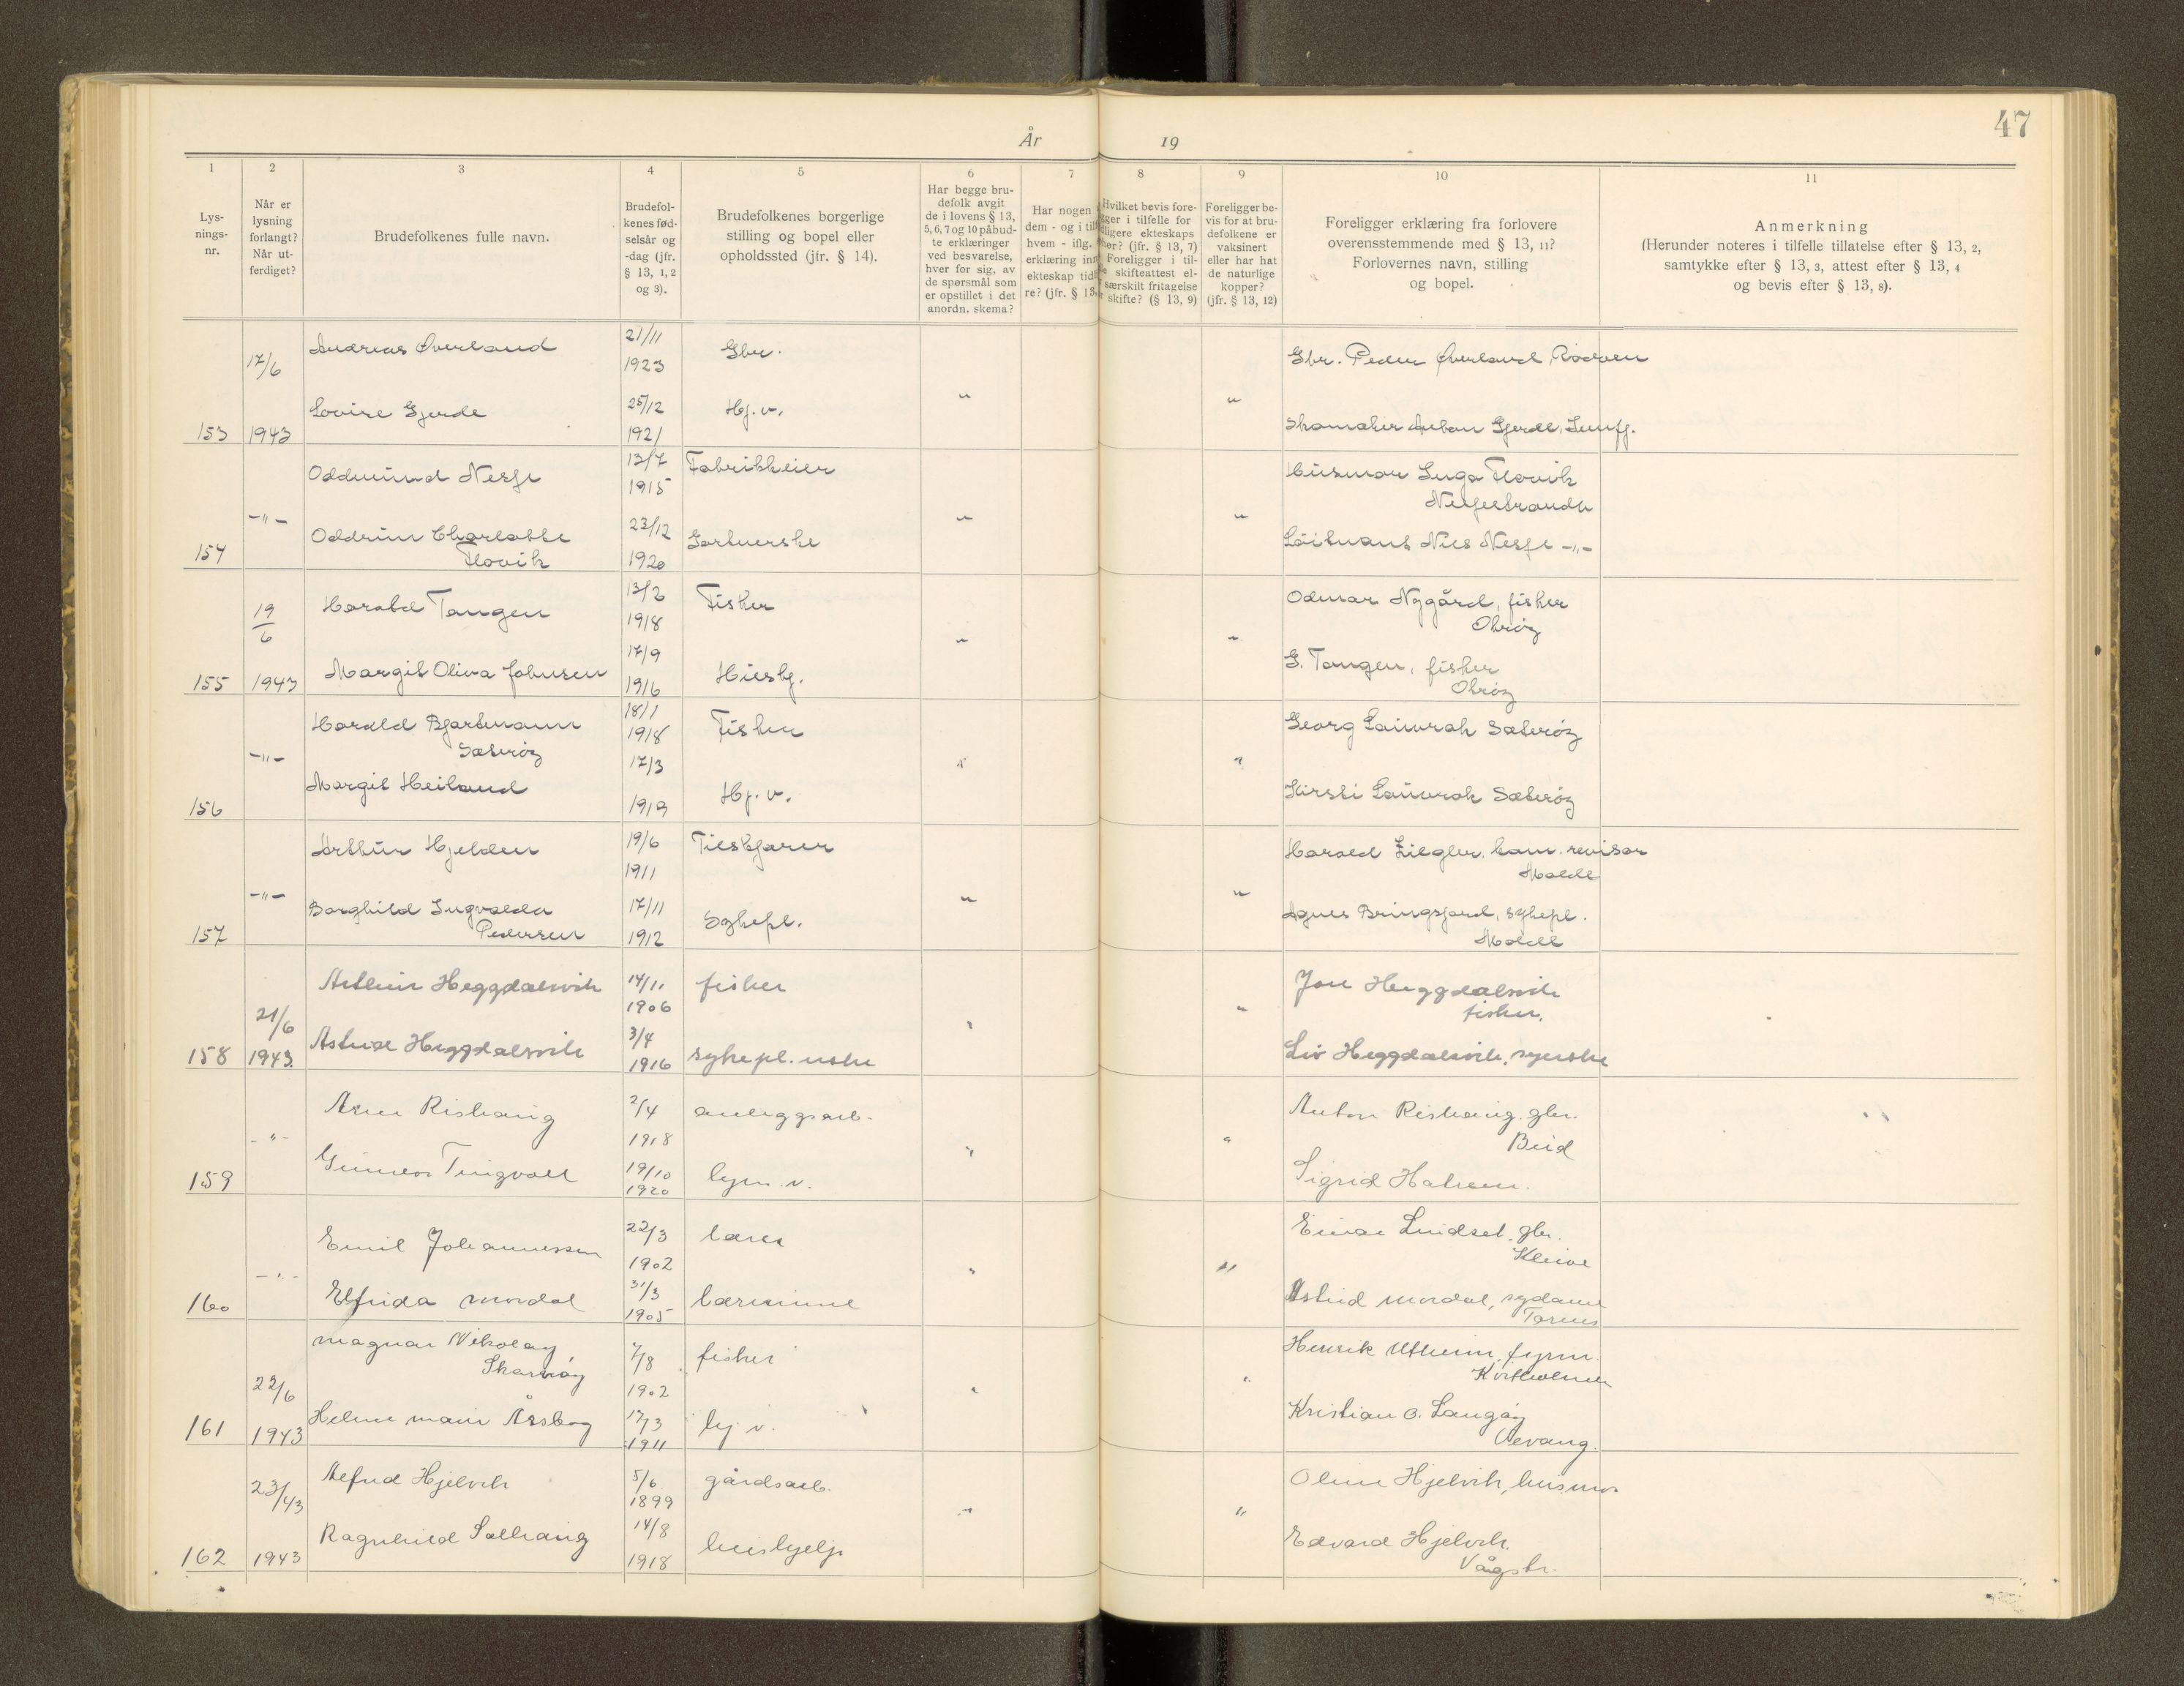 47
År 19
1 2 3 4 5 6 7 8 9 10 11
Lys-
nings-
nr.
Når er
lysning
forlangt?
Når ut-
ferdiget?
Brudefolkenes fulle navn.
Brudefol-
kenes fød-
selsår og
-dag (jfr.
§ 13, 1, 2
og 3).
Brudefolkenes borgerlige
stilling og bopel eller
opholdssted (jfr. § 14).
Har begge bru-
defolk avgit
de i lovens § 13,
5, 6, 7 og 10 påbud-
te erklæringer
ved besvarelse,
hver for sig, av
de spørsmål som
er opstillet i det
anordn. skema?
Har nogen
dem - og i til
hvem - iflg.
erklæring inn
ekteskap tid
re? (jfr. § 13,
Hvilket bevis fore-
gger i tilfelle for
dligere ekteskaps
hør? (jfr. § 13, 7)
Foreligger i til-
skifteattest el-
særskilt fritagelse
skifte? (§ 13, 9)
Foreligger be-
vis for at bru-
defolkene er
vaksinert
eller har hat
de naturlige
kopper?
(jfr. § 13, 12)
Foreligger erklæring fra forlovere
overensstemmende med § 13, 11?
Forlovernes navn, stilling
og bopel.
Anmerkning
(Herunder noteres i tilfelle tillatelse efter § 13, 2,
samtykke efter § 13, 3, attest efter § 13, 4
og bevis efter § 13, 8).
153 17/6 1943
Andreas Øverland 21/11 1923 Gbr.
Lovise Gjerde 25/12 1921 Hj. v. " "
Gbr. Peder Øverland Rødven
Skomaker Anton Gjerde,
154 -"-
Oddmund Nesje 13/7 1915 Fabrikkeier
Oddrun Charlotte
Flovik 23/12 1920 Gartnerske " "
Husmor Inga Flovik
Løitnant Nils Nesje -"-
155 19/6 1943
Harald Tangen 13/2 1918 Fisker
Margit Oliva Johnsen 17/9 1916 Hushj. " "
Odmar Nygård, fisker
Ohrøy
G. Tangen, fisker
Ohrøy
156 -"-
Harald Bjartmann
Sæterøy 18/1 1918 Fisker
Margit Heiland 17/3 1919 Hj. v. " "
Georg Laurak Sæterøy
Kirsti Laurak Sæterøy
157 -"-
Arthur Hjelden 19/6 1911 Tilskjærer
Borghild Ingvalda
Pedersen 17/11 1912 Sykepl. " "
Harald Ziegler, kom. revisor
Molde
Agnes Bringsjord, sykepl.
Molde
158 21/6 1943
Arthur Heggdalsvik 14/11 1906 fisker
Heggdalsvik 3/4 1916 sykepl.erske " "
Jon Heggdalsvik
fisker.
Liv Heggdalsvik, syerske
159 -"-
Arne Rishaug 2/4 1918 anleggsarb.
Gunvor Tingvoll 19/10 1920 hjem. v. " "
Anton Rishaug. gbr.
Bud
Sigrid
160 -"-
Emil Johannessen 22/3 1902 lærer
Elfrida Mordal 31/3 1905 lærerinne " "
Einar Lindset. gbr.
Kleive
Astrid Mordal, sydame
161 22/6 1943
Magnar Nikolay
Skarvøy 7/8 1902 fisker
Helene Marie Årsbog 17/3 1911 hj v. " "
Henrik Utheim, fyrm.
Kvitholmen
Kristian O. Langøy
Vevang.
162 23/43 1943
Alfred Hjelvik 5/6 1899 gårdsarb.
Ragnhild Solhaug 14/8 1918 hushjelp " "
Oline Hjelvik, husmor
Edvard Hjelvik.
Vågstr.